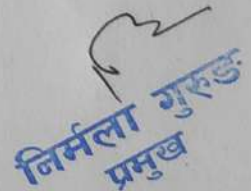 निर्मला गुरुङ
प्रमुख